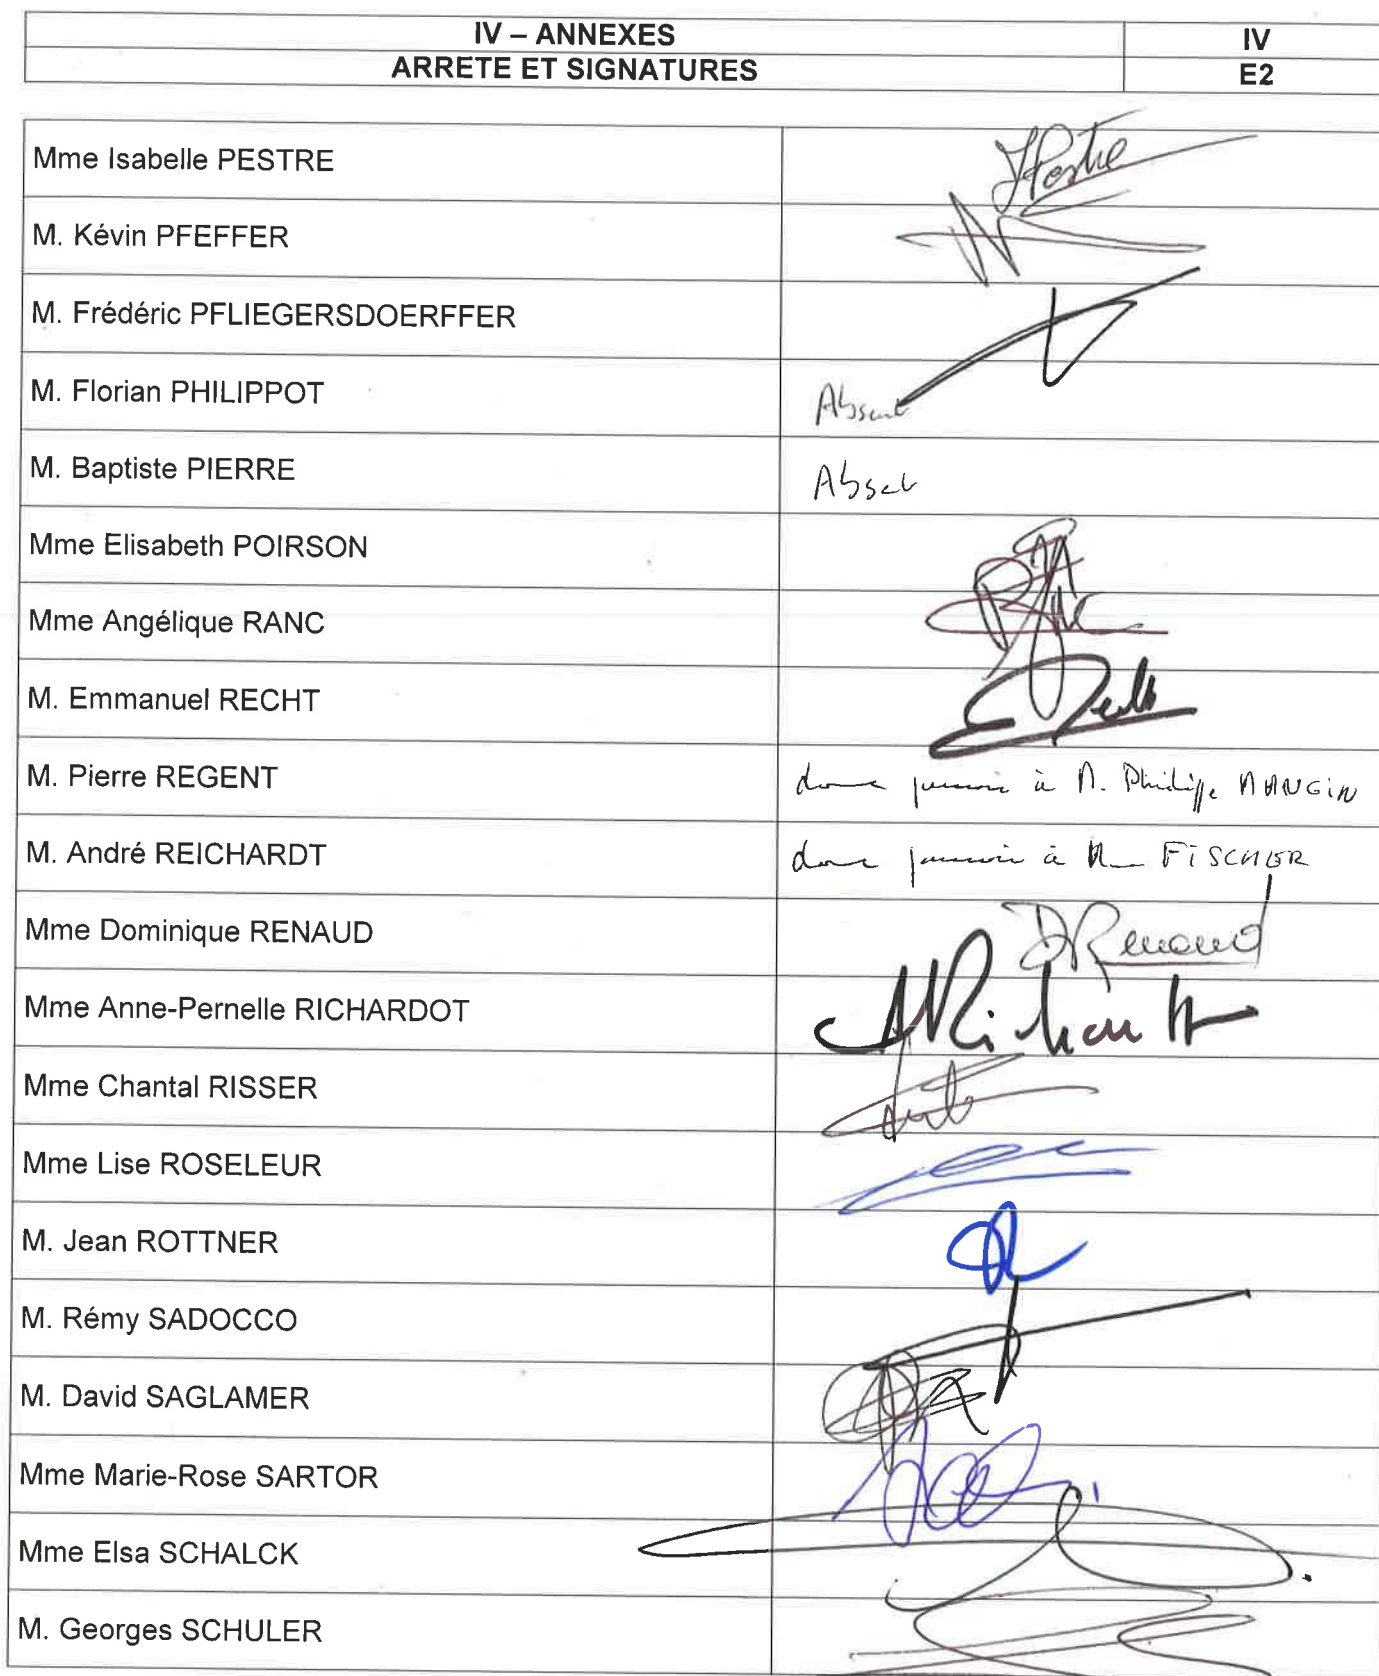 IV – ANNEXES IV
ARRETE ET SIGNATURES E2
Mme Isabelle PESTRE IPestre
M. Kévin PFEFFER
M. Frédéric PFLIEGERSDOERFFER
M. Florian PHILIPPOT Absent
M. Baptiste PIERRE Absent
Mme Elisabeth POIRSON
Mme Angélique RANC
M. Emmanuel RECHT
M. Pierre REGENT donne pouvoir à M. Philippe MANGIN
M. André REICHARDT donne pouvoir à Mme FISCHER
Mme Dominique RENAUD DRenaud
Mme Anne-Pernelle RICHARDOT
Mme Chantal RISSER
Mme Lise ROSELEUR
M. Jean ROTTNER
M. Rémy SADOCCO
M. David SAGLAMER
Mme Marie-Rose SARTOR
Mme Elsa SCHALCK
M. Georges SCHULER